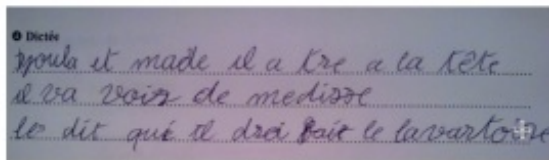 ❹ Dictée
Moula et made il a tre a la tête
il va voir de medisse
le dit qué il droi fait le lavartoire